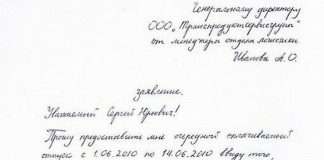 Генеральному директору
ООО „Транспродуктсервисгрупп"
от менеджера отдела логистики
Иванова А.О.
заявление.
Уважаемый Сергей Юрьевич!
Прошу предоставить мне очередной оплачиваемый
отпуск с 1.06.2010 по 14.06.2010 ввиду того,